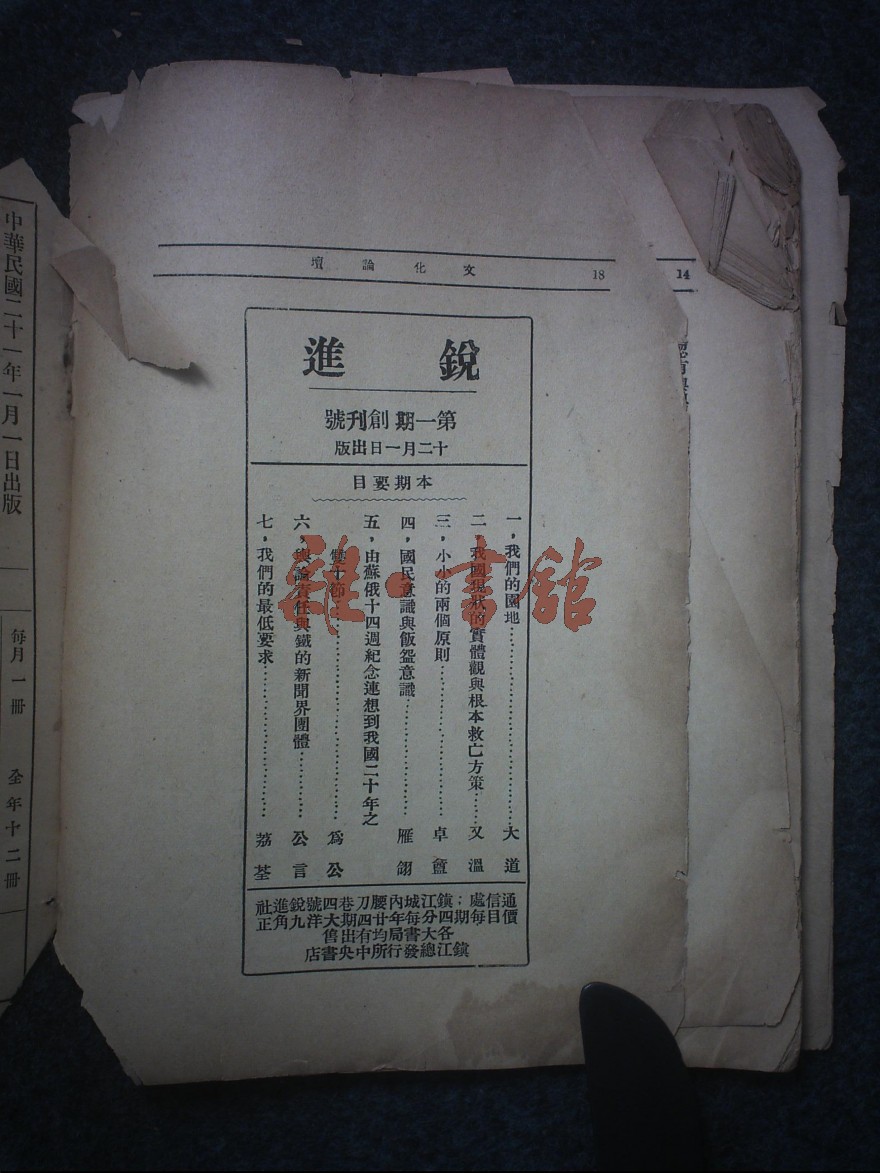 文化論壇
18
14
銳進
第一期創刊號
十二月一日出版
本期要目
一，我們的園地……大道
二，我國現狀的實體觀與根本救亡方策……又溫
三，小小的兩個原則……卓
四，國民意識與飯盌意識……雁翎
五，由蘇俄十四週紀念連想到我國二十年之
雙十節……爲公
六，輿論責任與鐵的新聞界團體……公言
七，我們的最低要求……荔荃
通信處；鎮江城內腰刀巷四號銳進社
價目每期四分每年廿四期大洋九角正
各大書局均有出售
鎮江總發行所中央書店
中華民國二十一年一月一日出版
每月一冊　全年十二冊
雜·書館